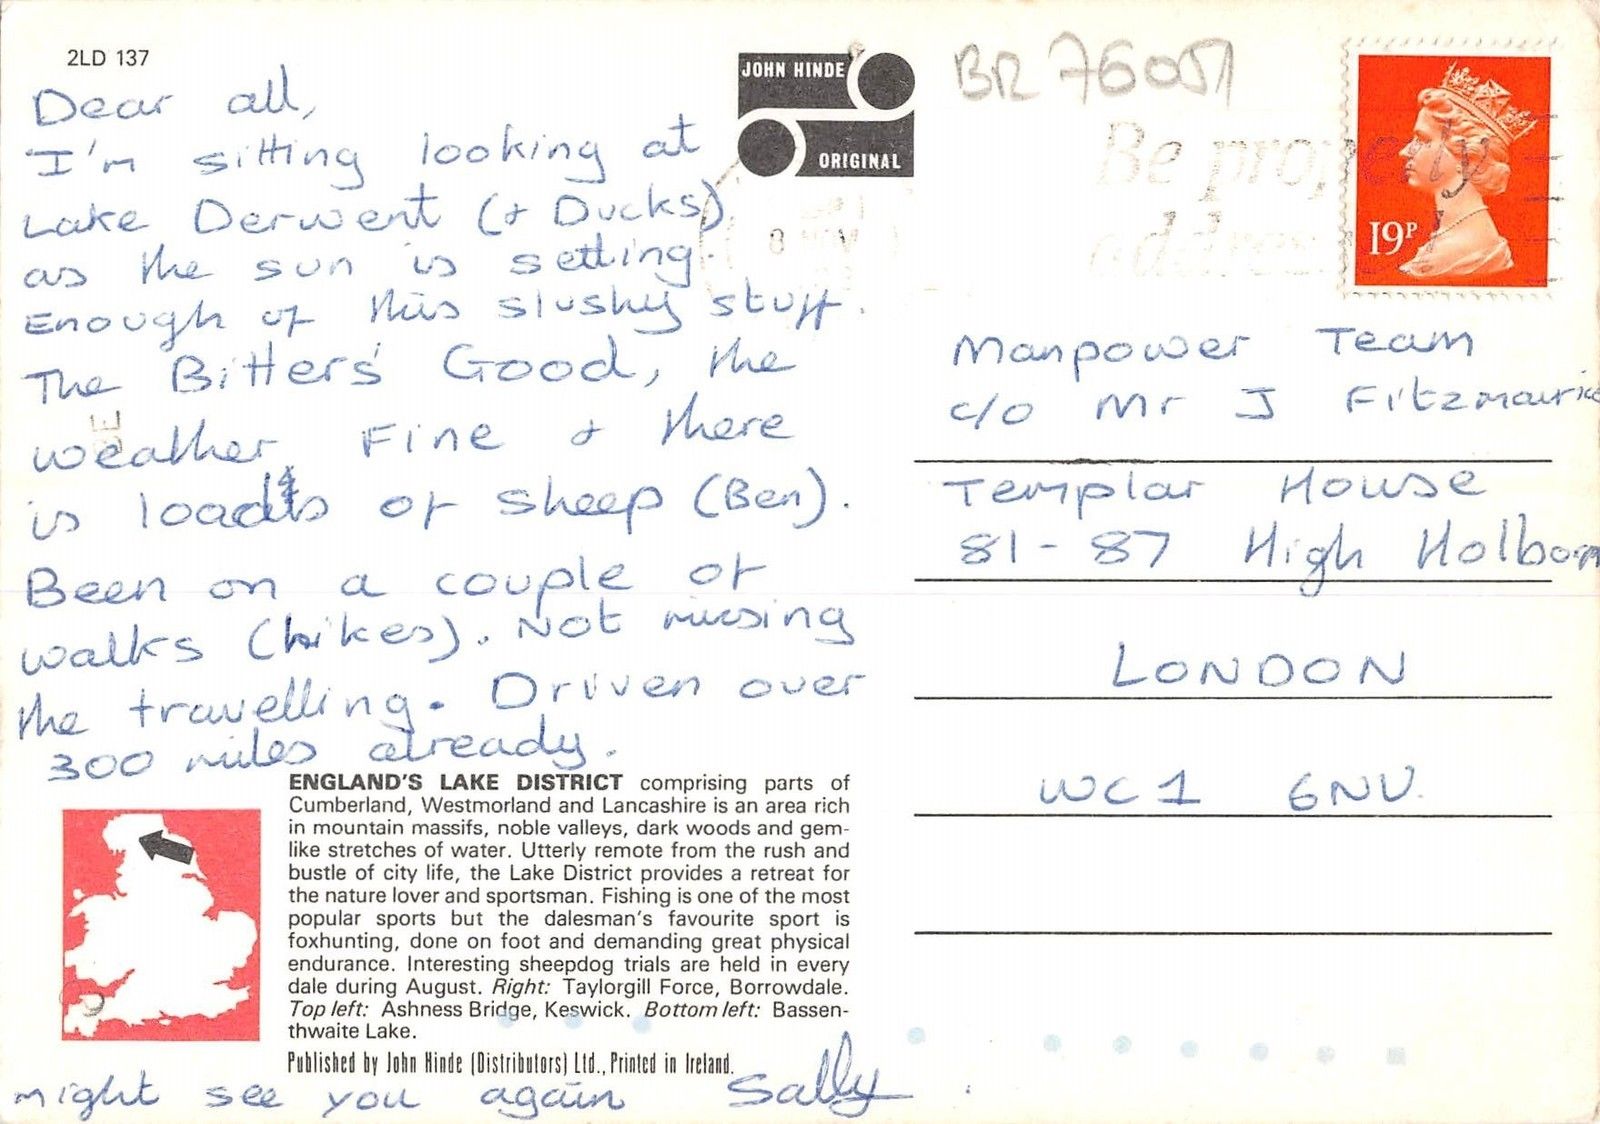 2LD 137
Dear all,
I'm sitting looking at
Lake Derwent (+ Ducks)
as the sun is setting.
Enough of this slushy stuff.
The Bitters' Good, the
weather Fine + there
is loads of sheep (Ben).
Been on a couple of
walks (hikes). Not missing
the travelling. Driven over
300 miles already.
might see you again Sally
JOHN HINDE
ORIGINAL
BR 76051
8 NOV
Be properly
19P
Manpower Team
c/o Mr J Fitzmaurice
Templar House
81-87 High Holborn
LONDON
WC1 6NU.
ENGLAND'S LAKE DISTRICT comprising parts of
Cumberland, Westmorland and Lancashire is an area rich
in mountain massifs, noble valleys, dark woods and gem-
like stretches of water. Utterly remote from the rush and
bustle of city life, the Lake District provides a retreat for
the nature lover and sportsman. Fishing is one of the most
popular sports but the dalesman's favourite sport is
foxhunting, done on foot and demanding great physical
endurance. Interesting sheepdog trials are held in every
dale during August. Right: Taylorgill Force, Borrowdale.
Top left: Ashness Bridge, Keswick. Bottom left: Bassen-
thwaite Lake.
Published by John Hinde (Distributors) Ltd., Printed in Ireland.